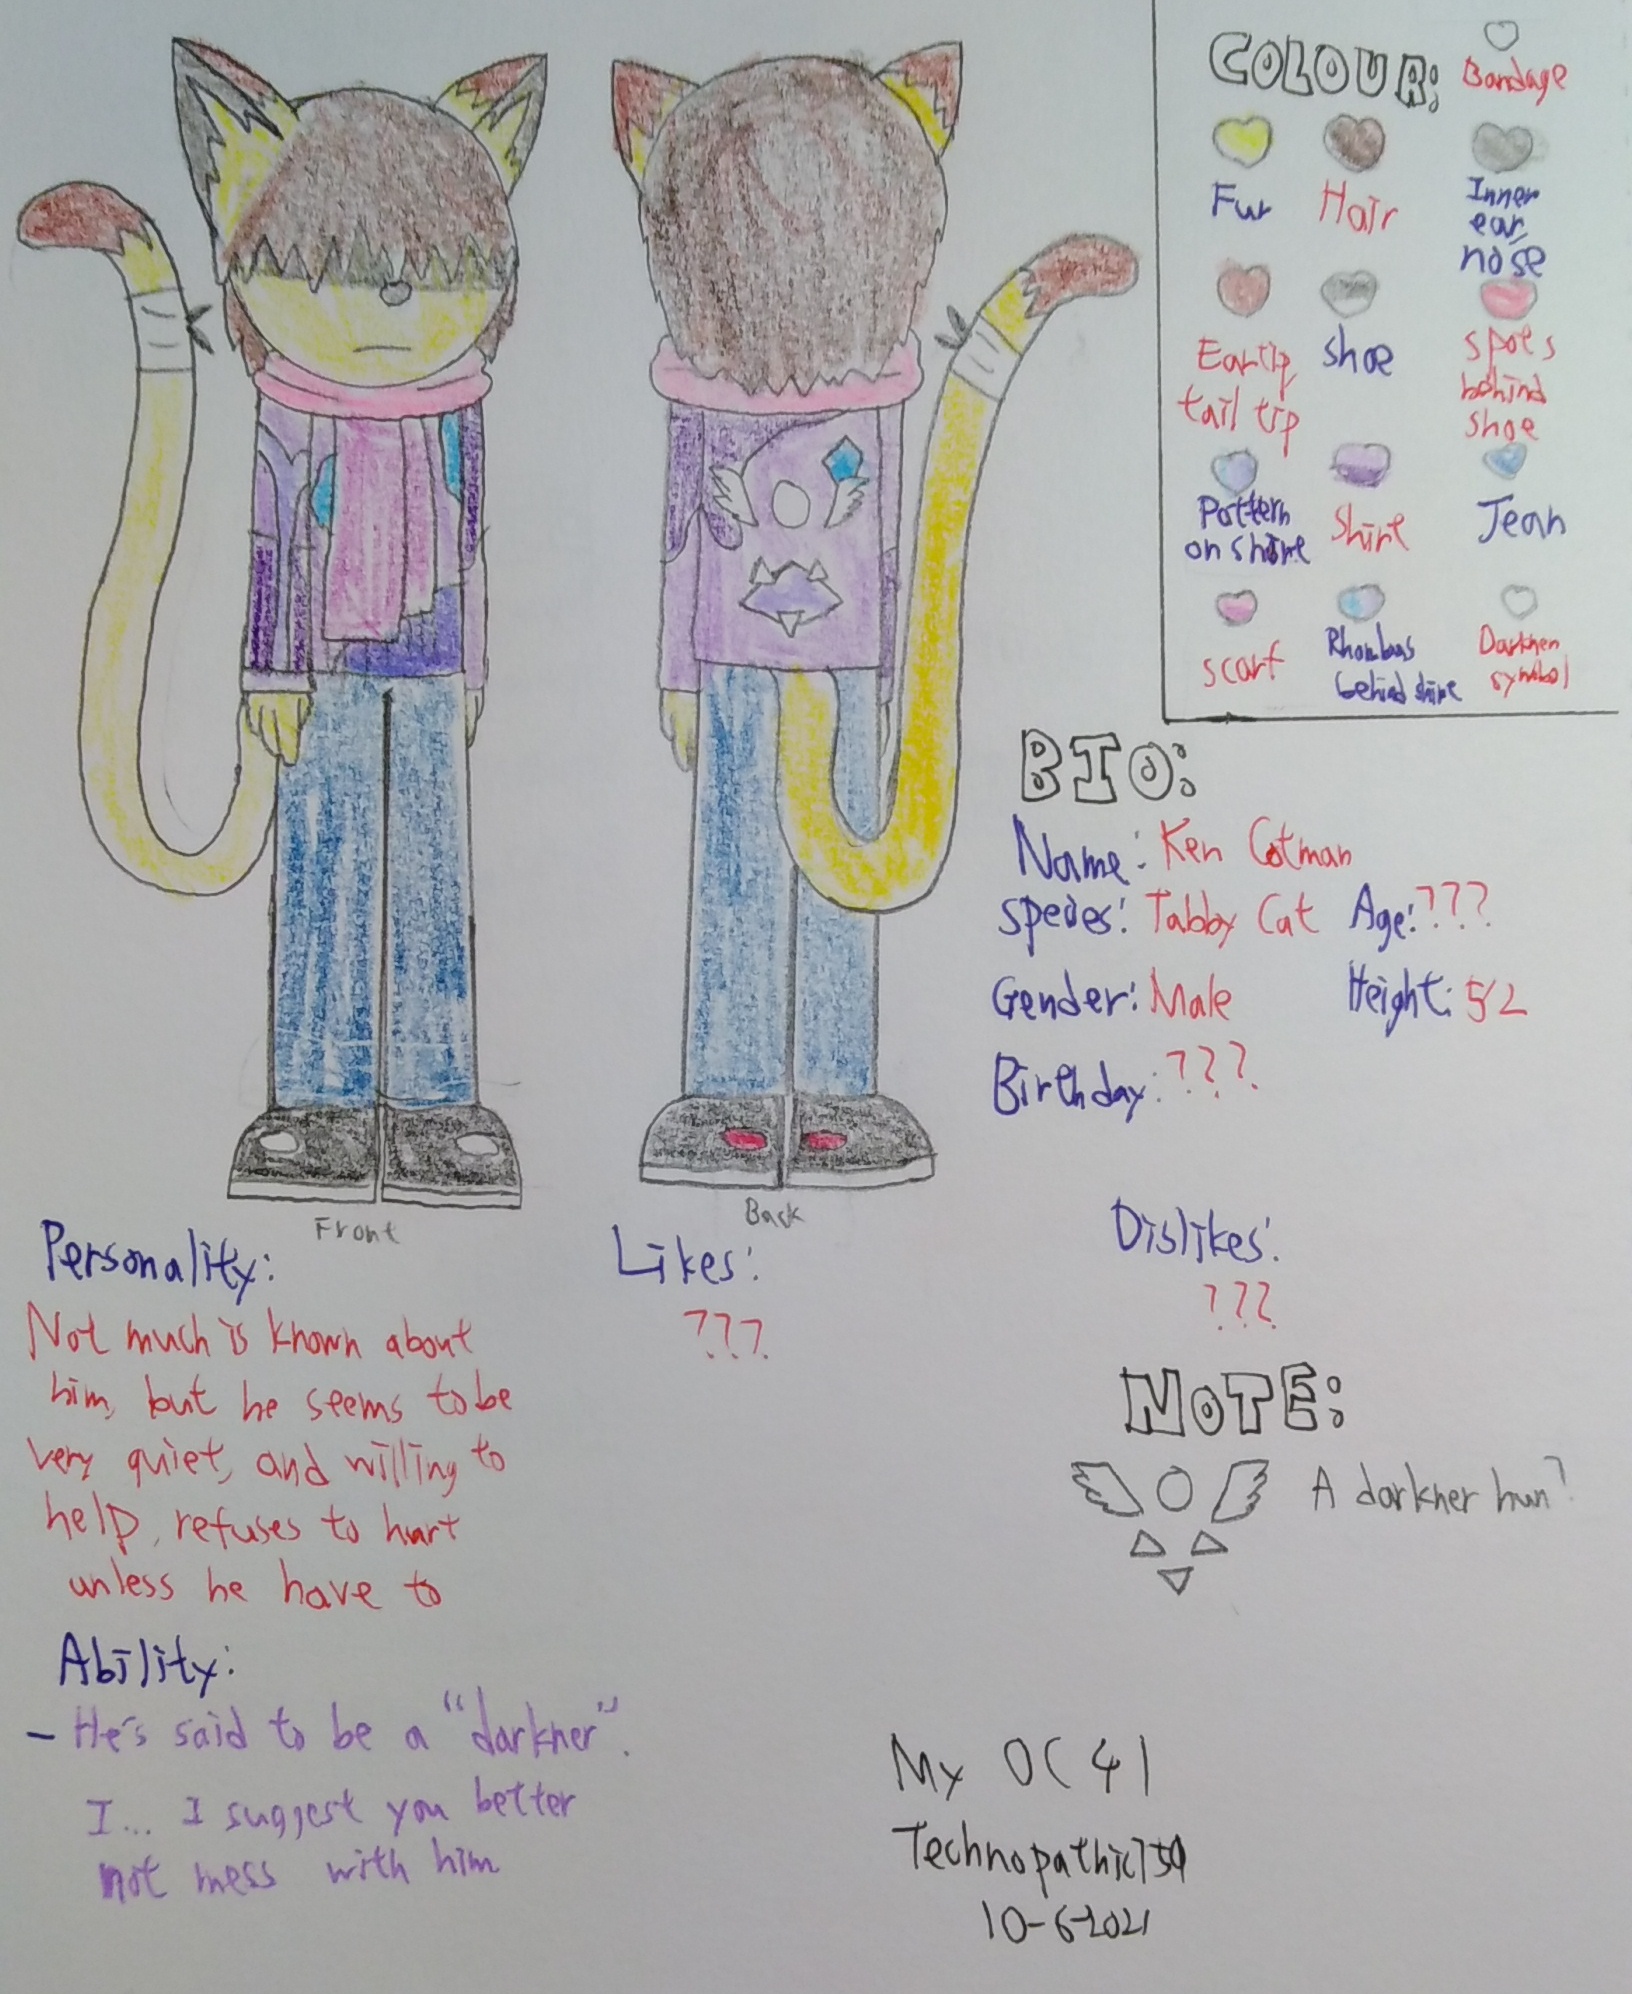 COLOUR:
Bandage
Fur
Hair
Inner
ear,
nose
Eartip
tail tip
shoe
spots
behind
shoe
Pattern
on shirt
Shirt
Jean
scarf
Rhombus
behind shirt
Darkner
symbol
BIO:
Name: Ken Catman
Species: Tabby Cat Age: ???
Gender: Male Height: 5'2
Birthday: ???
Front
Back
Personality:
Not much is known about
him, but he seems to be
very quiet, and willing to
help, refuses to hurt
unless he have to
Likes:
???
Dislikes:
???
NOTE:
A darkner hun?
Ability:
- He's said to be a "darkner".
I... I suggest you better
not mess with him
My OC 41
Technopathic159
10-6-2021